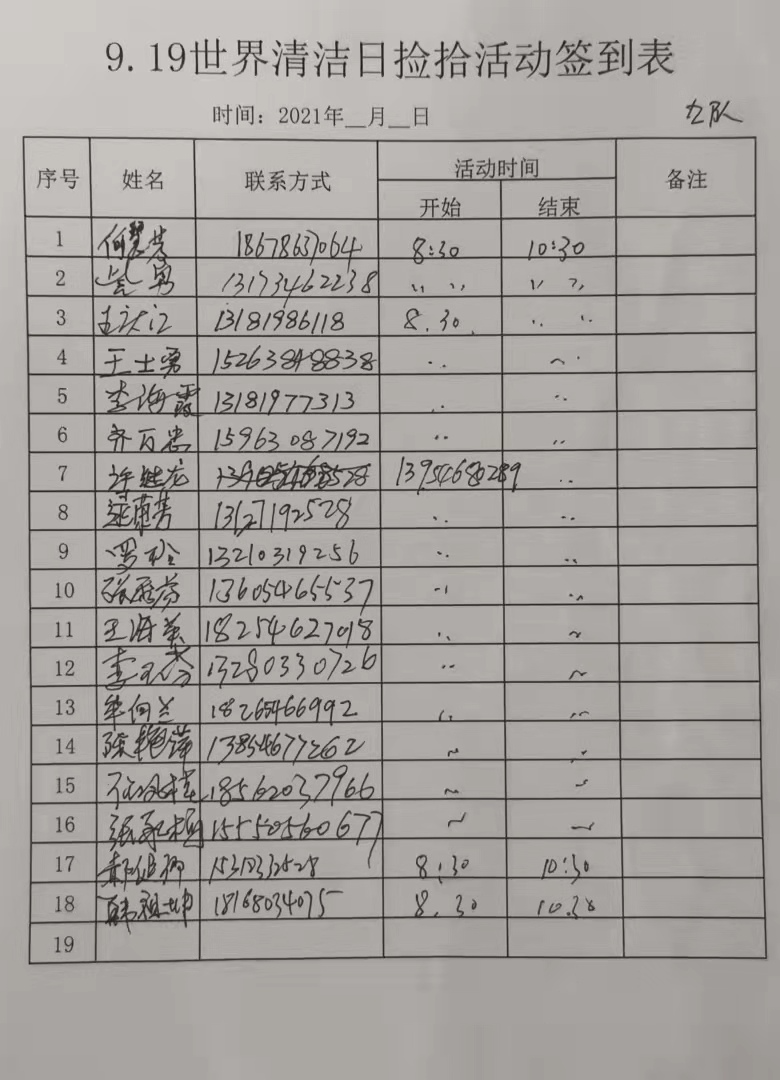 9.19世界清洁日捡拾活动签到表
时间：2021年__月__日
九队
序号 姓名 联系方式 活动时间 备注
开始 结束
1 18678637064 8:30 10:30
2 13173462238 〃 〃
3 13181986118 8.30 〃
4 王士勇 15263848838 〃 〃
5 李海霞 13181977313 〃 〃
6 齐百忠 15963087192 〃 〃
7 许继龙 13954686289 〃
8 13127192528 〃 〃
9 13210319256 〃 〃
10 13605465537 〃 〃
11 王海英 18254627018 〃 〃
12 13280330726 〃 〃
13 18265466992 〃 〃
14 陈艳萍 13854677262 〃 〃
15 18562037966 〃 〃
16 15550560677 〃 〃
17 8:30 10:30
18 韩祖坤 18168034075 8.30 10.30
19